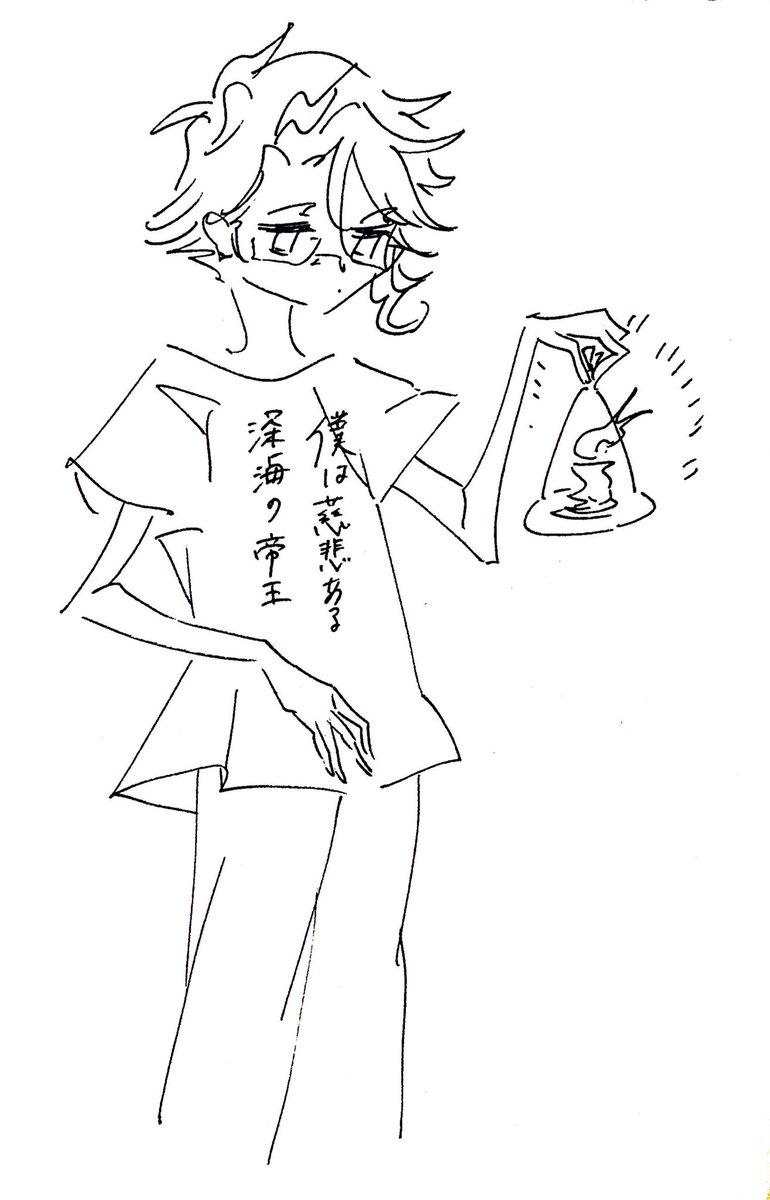 僕は慈悲ある
深海の帝王